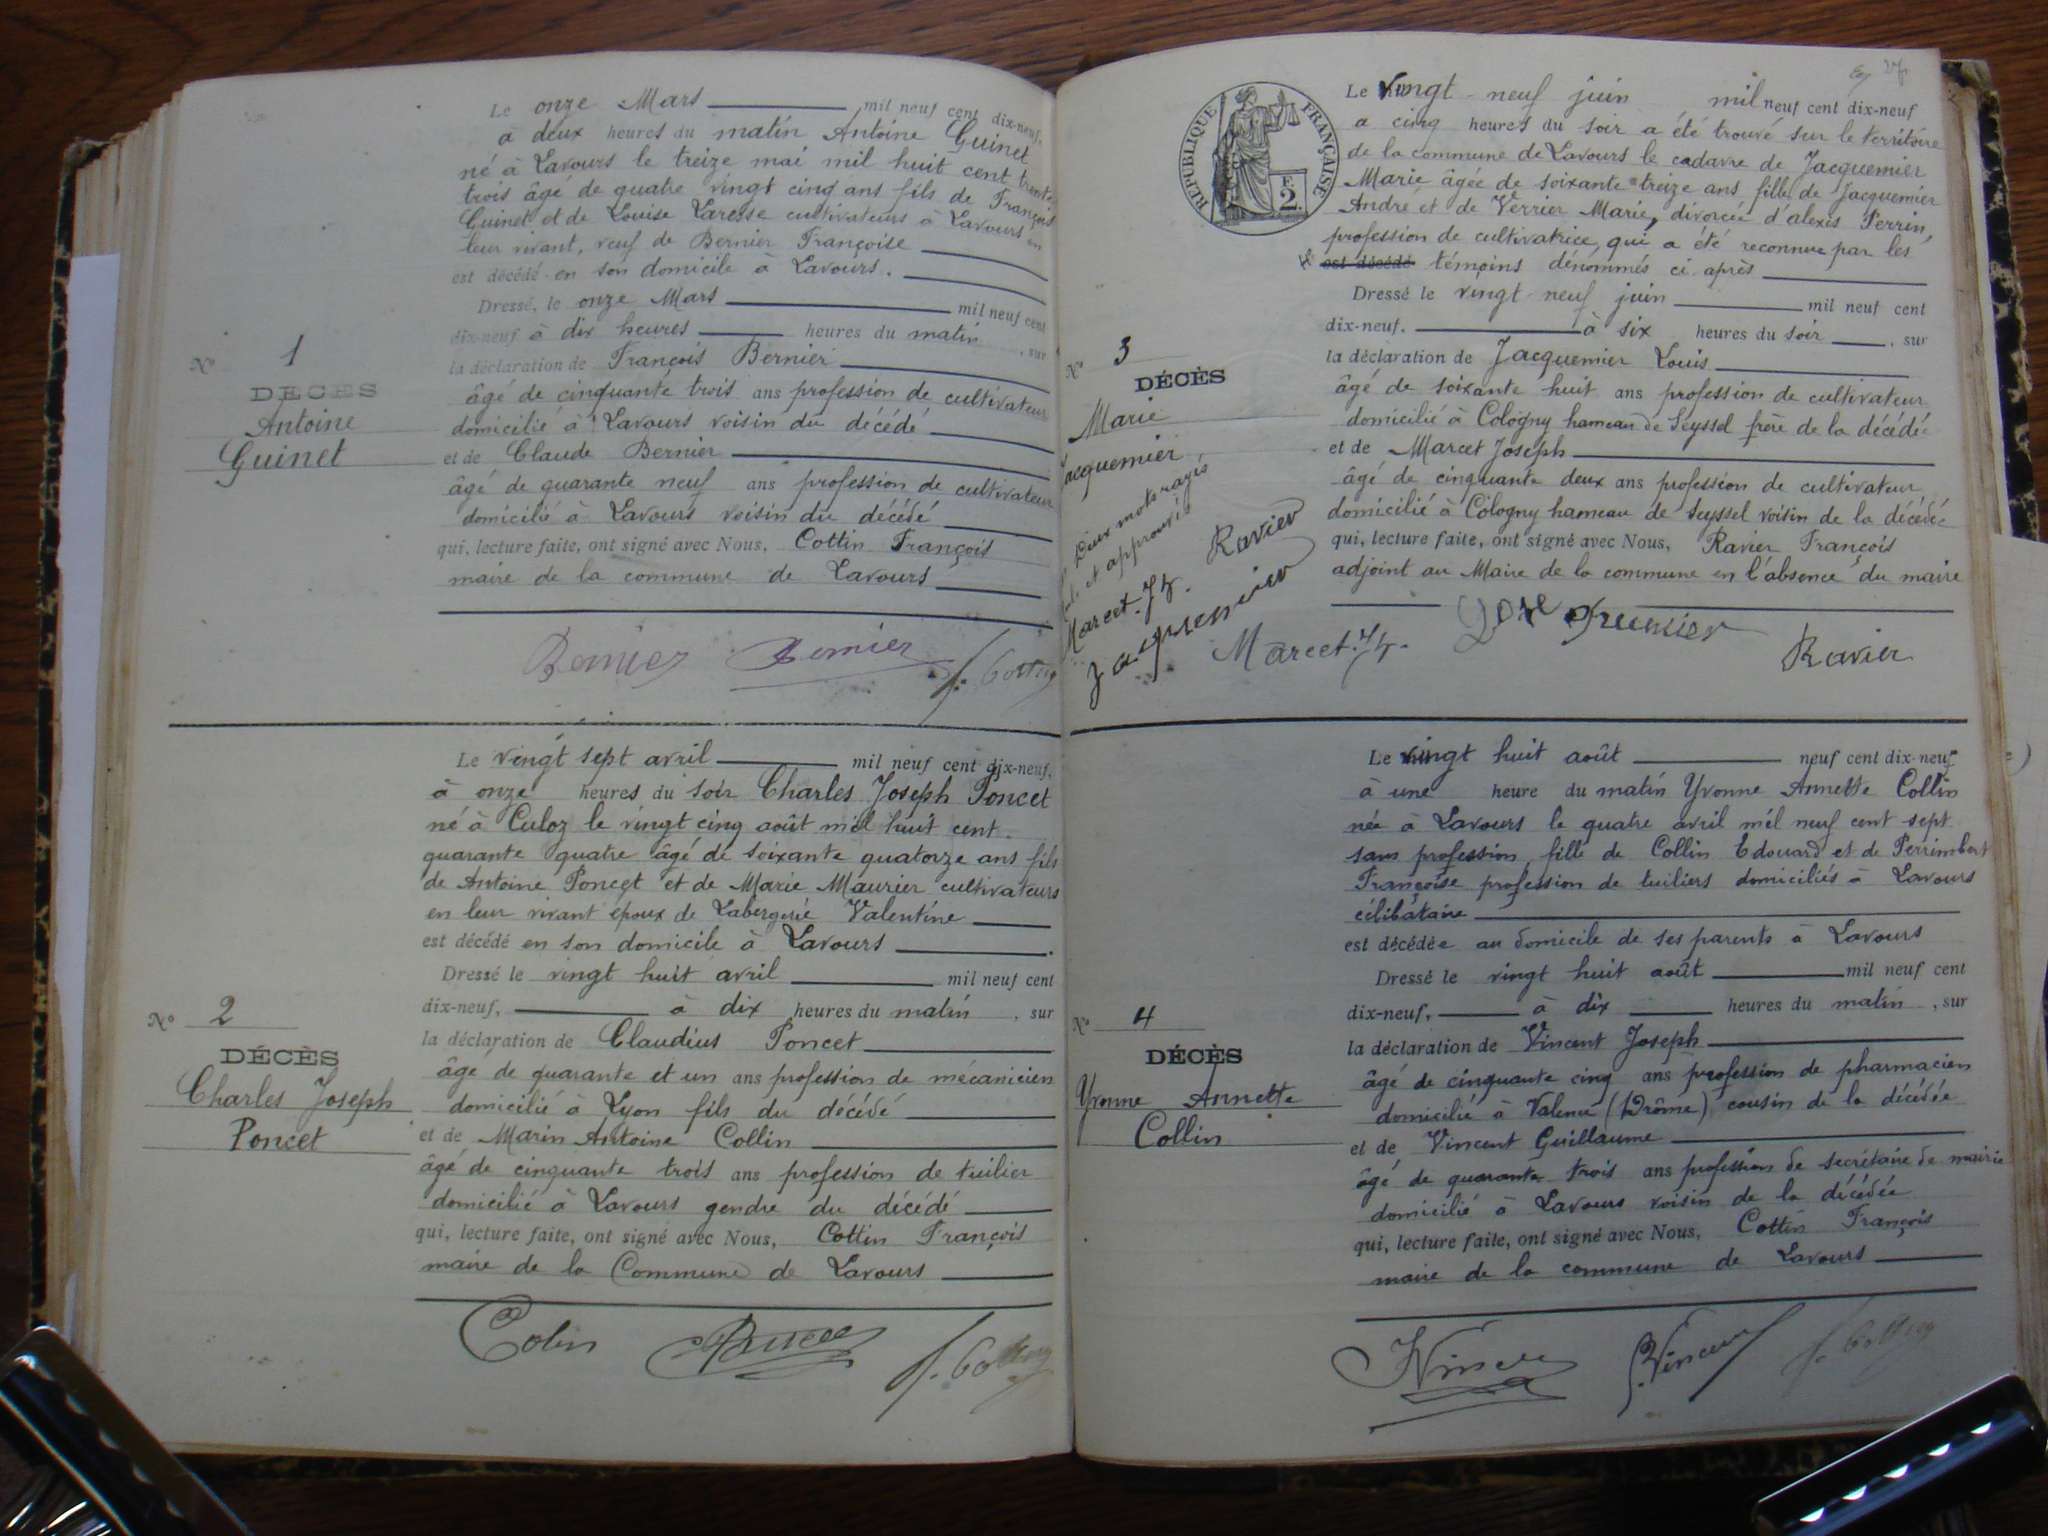 Le onze Mars mil neuf cent dix-neuf,
a deux heures du matin Antoine Guinet
né à Lavours le treize mai mil huit cent trente
trois âgé de quatre vingt cinq ans fils de François
Guinet et de Louise cultivateurs à Lavours en
leur vivant, veuf de Bernier Françoise
est décédé en son domicile à Lavours.
Dressé, le onze Mars mil neuf cent
dix-neuf à dix heures heures du matin, sur
la déclaration de François Bernier
âgé de cinquante trois ans profession de cultivateur
domicilié à Lavours voisin du décédé
et de Claude Bernier
âgé de quarante neuf ans profession de cultivateur
domicilié à Lavours voisin du décédé
qui, lecture faite, ont signé avec Nous, Cottin François
maire de la commune de Lavours
Bernier Bernier f. Cottin
No 1
DÉCÈS
Antoine
Guinet
Le vingt sept avril mil neuf cent dix-neuf,
à onze heures du soir Charles Joseph Poncet
né à Culoz le vingt cinq août mil huit cent
quarante quatre âgé de soixante quatorze ans fils
de Antoine Poncet et de Marie Maurier cultivateurs
en leur vivant époux de Labergerie Valentine
est décédé en son domicile à Lavours.
Dressé le vingt huit avril mil neuf cent
dix-neuf, à dix heures du matin, sur
la déclaration de Claudius Poncet
âgé de quarante et un ans profession de mécanicien
domicilié à Lyon fils du décédé
et de Marin Antoine Collin
âgé de cinquante trois ans profession de tuilier
domicilié à Lavours gendre du décédé
qui, lecture faite, ont signé avec Nous, Cottin François
maire de la Commune de Lavours
Colin Poncet f. Cottin
No 2
DÉCÈS
Charles Joseph
Poncet
RÉPUBLIQUE FRANÇAISE
E
2
Le vingt neuf juin mil neuf cent dix-neuf
a cinq heures du soir a été trouvé sur le territoire
de la commune de Lavours le cadavre de Jacquemier
Marie âgée de soixante-treize ans fille de Jacquemier
André et de Verrier Marie, divorcée d'alexis Perrin,
profession de cultivatrice, qui a été reconnue par les
est décédé témoins dénommés ci-après
Dressé le vingt-neuf juin mil neuf cent
dix-neuf. à six heures du soir, sur
la déclaration de Jacquemier Louis
âgé de soixante huit ans profession de cultivateur
domicilié à Cologny hameau de Seyssel frère de la décédée
et de Marcet Joseph
âgé de cinquante deux ans profession de cultivateur
domicilié à Cologny hameau de Seyssel voisin de la décédée
qui, lecture faite, ont signé avec Nous, Ravier François
adjoint au Maire de la commune en l'absence du maire
Marcet Jh. Jacquemier Ravier
No 3
DÉCÈS
Marie
Jacquemier
Deux mots rayés
et approuvés
Ravier
Marcet. Jh.
Jacquemier
Le vingt huit août neuf cent dix-neuf
à une heure du matin Yvonne Annette Collin
née à Lavours le quatre avril mil neuf cent sept
sans profession, fille de Collin Edouard et de Perrimbert
Françoise profession de tuiliers domiciliés à Lavours
célibataire
est décédée au domicile de ses parents à Lavours
Dressé le vingt huit août mil neuf cent
dix-neuf, à dix heures du matin, sur
la déclaration de Vincent Joseph
âgé de cinquante cinq ans profession de pharmacien
domicilié à Valence (Drôme) cousin de la décédée
et de Vincent Guillaume
âgé de quarante trois ans profession de secrétaire de mairie
domicilié à Lavours voisin de la décédée
qui, lecture faite, ont signé avec Nous, Cottin François
maire de la commune de Lavours
JVincent GVincent f. Cottin
No 4
DÉCÈS
Yvonne Annette
Collin